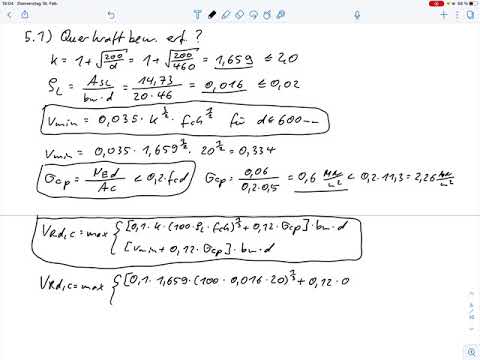 15:04 Donnerstag 18. Feb.
5.1) Querkraftbew. erf. ?
k = 1+√(200/d) = 1+√(200/460) = 1,659 ≤ 2,0
ρL = Asl/(bw·d) = 14,73/(20·46) = 0,016 ≤ 0,02
Vmin = 0,035 · k^(3/2) · fck^(1/2) für d≤600mm
Vmin = 0,035 · 1,659^(3/2) · 20^(1/2) = 0,334
σcp = NEd/Ac < 0,2·fcd σcp = 0,06/(0,2·0,5) = 0,6 MN/m² < 0,2·11,3 = 2,26 MN/m²
VRd,c = max { [0,1·k·(100·ρL·fck)^(1/3) + 0,12·σcp]·bw·d
[Vmin + 0,12·σcp]·bw·d
VRd,c = max { [0,1·1,659·(100·0,016·20)^(1/3) + 0,12·0